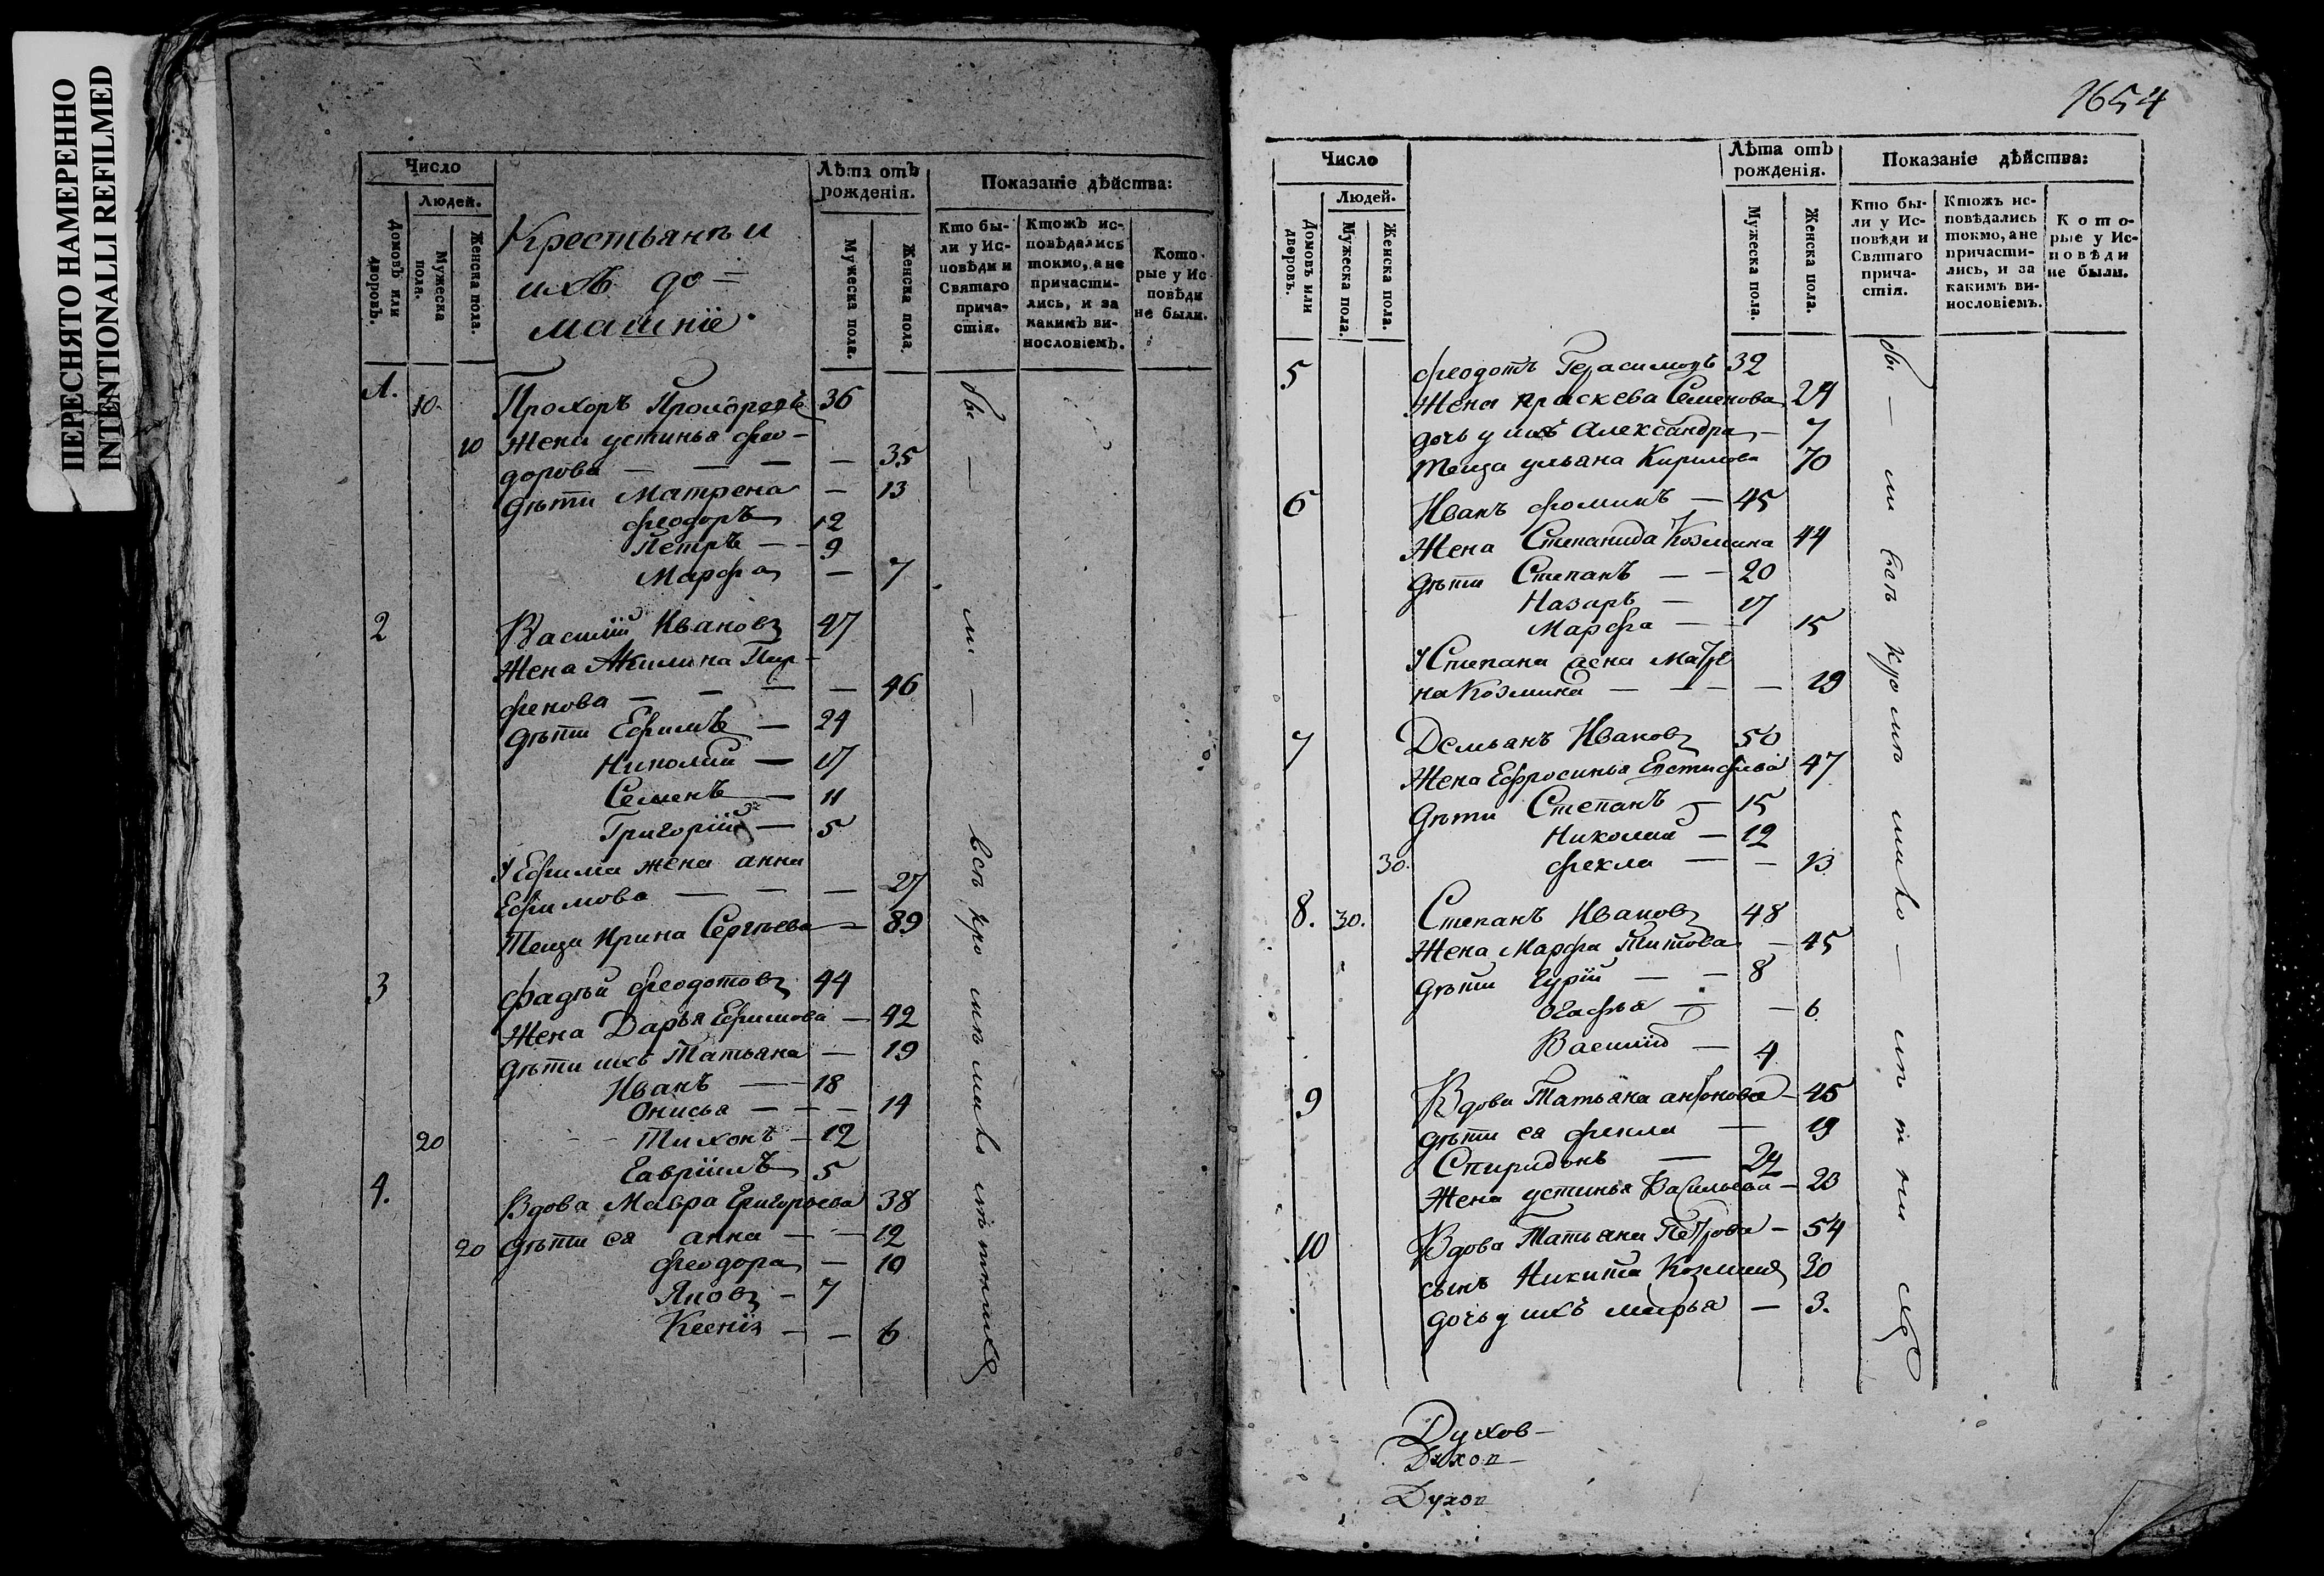 ПЕРЕСНЯТО НАМЕРЕННО
INTENTIONALLI REFILMED
Число
Людей.
Домовъ или дворовъ.
Мужеска пола.
Женска пола.
Крестьянъ и
ихъ до=
машніе.
Лѣта отъ рожденія.
Мужеска пола.
Женска пола.
Показаніе дѣйства:
Кто бы-
ли у Ис-
повѣди и
Святаго
прича-
стія.
Ктожъ ис-
повѣдались
токмо, а не
причасти-
лись, и за
какимъ ви-
нословіемъ.
Кото-
рые у Ис-
повѣди
не были.
1. 10. Прохоръ Прохоровъ 36
10 Жена устинья фео-
дорова — — — — 35
дѣти Матрена — 13
феодоръ 12
Петръ — — 9
Марфа — 7
2 Василій Ивановъ 47
Жена Акилина Пар-
фенова — — — — 46
дѣти Ефимъ — 24
Николай — 17
Семенъ — 11
Григорій — 5
У Ефима жена анна
Ефимова — — — 27
Теща Ирина Сергѣева — 89
3 фадѣй феодотовъ 44
Жена Дарья Ефимова — 42
дѣти ихъ Татьяна — 19
Иванъ — 18
Онисья — — — 14
20 Тихонъ — 12
Гавріилъ 5
4. Вдова Мавра Григорьева 38
20 дѣти ея анна — — 12
феодора — 10
Яковъ — 7
Ксенія — — 6
бы — ли — всѣ кро мѣ мало лѣтнихъ
1654
Число
Людей.
Домовъ или дворовъ.
Мужеска пола.
Женска пола.
Лѣта отъ рожденія.
Мужеска пола.
Женска пола.
Показаніе дѣйства:
Кто бы-
ли у Ис-
повѣди и
Святаго
прича-
стія.
Ктожъ ис-
повѣдались
токмо, а не
причасти-
лись, и за
какимъ ви-
нословіемъ.
Кото-
рые у Ис-
повѣди
не были.
5 феодотъ Герасимовъ 32
Жена праскева Семенова 24
дочь у ихъ Александра — 7
теща ульяна Кирилова 70
6 Иванъ фоминъ — 45
Жена Степанида Козмина 44
дѣти Степанъ — — 20
Назаръ — 17
Марфа — — 15
У Степана жена Матре
на Козмина — — — — 19
7 Демьанъ Ивановъ 50
Жена Ефросинья Евстифіева 47
дѣти Степанъ — 15
Николай — 12
30. фекла — — 13
8. 30. Степанъ Ивановъ 48
Жена Марфа Титова — 45
дѣти Гурій — — 8
Огафья — — 6
Василій — 4
9 Вдова Татьяна антонова — 45
дѣти ея фекла — 19
Спиридонъ — 24
Жена устинья Васильева — 23
10 Вдова Татьяна Петрова — 54
сынъ Никита Козминъ 30
дочь у ихъ марья — 3.
бы — ли всѣ кро мѣ мало — лѣт ни хъ
Духов—
Духов—
Духов